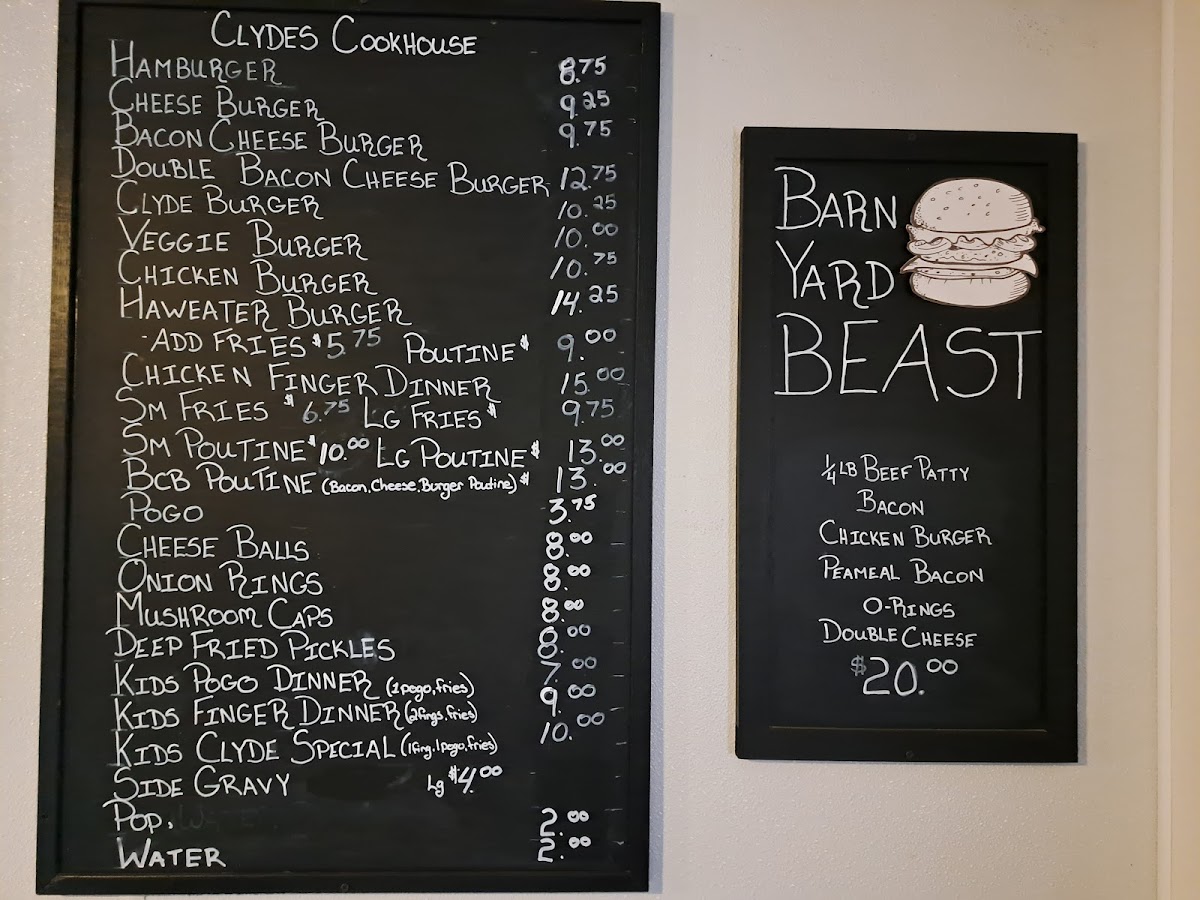 CLYDES COOKHOUSE
HAMBURGER 8.75
CHEESE BURGER 9.25
BACON CHEESE BURGER 9.75
DOUBLE BACON CHEESE BURGER 12.75
CLYDE BURGER 10.25
VEGGIE BURGER 10.00
CHICKEN BURGER 10.75
HAWEATER BURGER 14.25
-ADD FRIES $5.75 POUTINE $ 9.00
CHICKEN FINGER DINNER 15.00
SM FRIES $ 6.75 LG FRIES $ 9.75
SM POUTINE $10.00 LG POUTINE $ 13.00
BCB POUTINE (Bacon, Cheese, Burger Poutine) $ 13.00
POGO 3.75
CHEESE BALLS 8.00
ONION RINGS 8.00
MUSHROOM CAPS 8.00
DEEP FRIED PICKLES 8.00
KIDS POGO DINNER (1 pogo, fries) 7.00
KIDS FINGER DINNER (2 fings, fries) 9.00
KIDS CLYDE SPECIAL (1 fing, 1 pogo, fries) 10.00
SIDE GRAVY Lg $4.00
POP, WATER 2.00
WATER 2.00
BARN
YARD
BEAST
1/4 LB BEEF PATTY
BACON
CHICKEN BURGER
PEAMEAL BACON
O-RINGS
DOUBLE CHEESE
$20.00